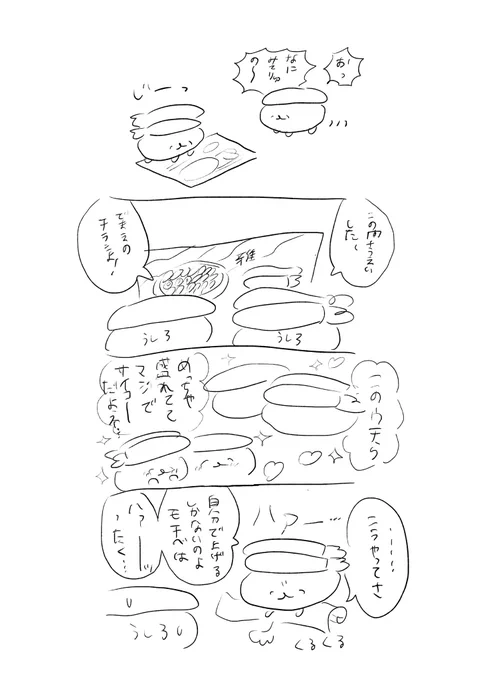 おっ
なに
みてりゅ
の〜
じーっ
この間さつえい
した〜
でまえの
チラシよ!
雅
うしろ
うしろ
このウチら
めっちゃ
盛れてて
マジで
サイコー
だよね
……
こうやってさ
ハァー…
自分で上げる
しかないのよ
モチベは
ハァーーッ
ったく…
くるくる
うしろ